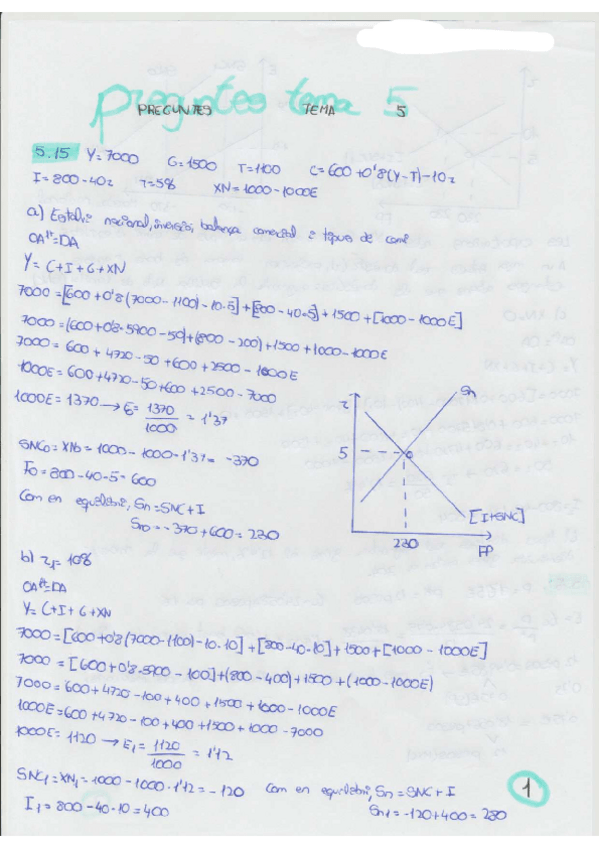 preguntes tema 5
PREGUNTES TEMA 5
5.15 Y=7000 G=1500 T=1100 C=600+0'8(Y-T)-10r
I=800-40r r=5% XN=1000-1000E
a) Estalvi nacional, inversió, balança comercial i tipus de canvi
OA^{LP}=DA
Y=C+I+G+XN
7000=[600+0'8(7000-1100)-10·5]+[800-40·5]+1500+[1000-1000E]
7000=(600+0'8·5900-50)+(800-200)+1500+1000-1000E
7000=600+4720-50+600+2500-1000E
1000E=600+4720-50+600+2500-7000
1000E=1370→E₀=1370/1000=1'37
SNC₀=XN₀=1000-1000·1'37=-370
I₀=800-40·5=600
Com en equilibri, Sn=SNC+I
Sn₀=-370+600=230
r
Sn
5
[I+SNC]
230
FP
b) r₁=10%
OA^{LP}=DA
Y=C+I+G+XN
7000=[600+0'8(7000-1100)-10·10]+[800-40·10]+1500+[1000-1000E]
7000=[600+0'8·5900-100]+(800-400)+1500+(1000-1000E)
7000=600+4720-100+400+1500+1000-1000E
1000E=600+4720-100+400+1500+1000-7000
1000E=1120→E₁=1120/1000=1'12
SNC₁=XN₁=1000-1000·1'12=-120 Com en equilibri, Sn=SNC+I
I₁=800-40·10=400 Sn₁=-120+400=280
1